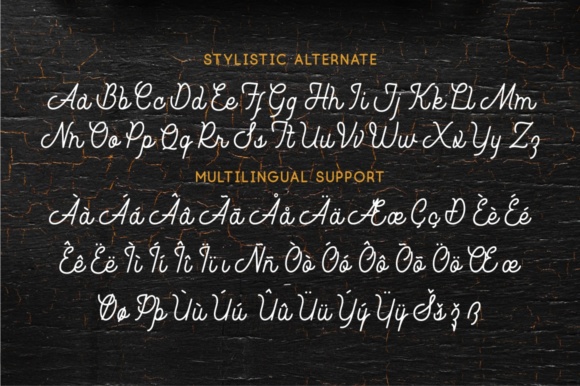 STYLISTIC ALTERNATE
Aa Bb Cc Dd Ee Ff Gg Hh Ii Jj Kk Ll Mm
Nn Oo Pp Qq Rr Ss Tt Uu Vv Ww Xx Yy Zz
MULTILINGUAL SUPPORT
Àà Áá Ââ Ãã Åå Ää Ææ Çç Ð Èè Éé
Êê Ëë Ìì Íí Îî Ïï ı Ññ Òò Óó Ôô Õõ Öö Œœ
Øø Þþ Ùù Úú Ûû Üü Ýý Ÿÿ Šš ž ß